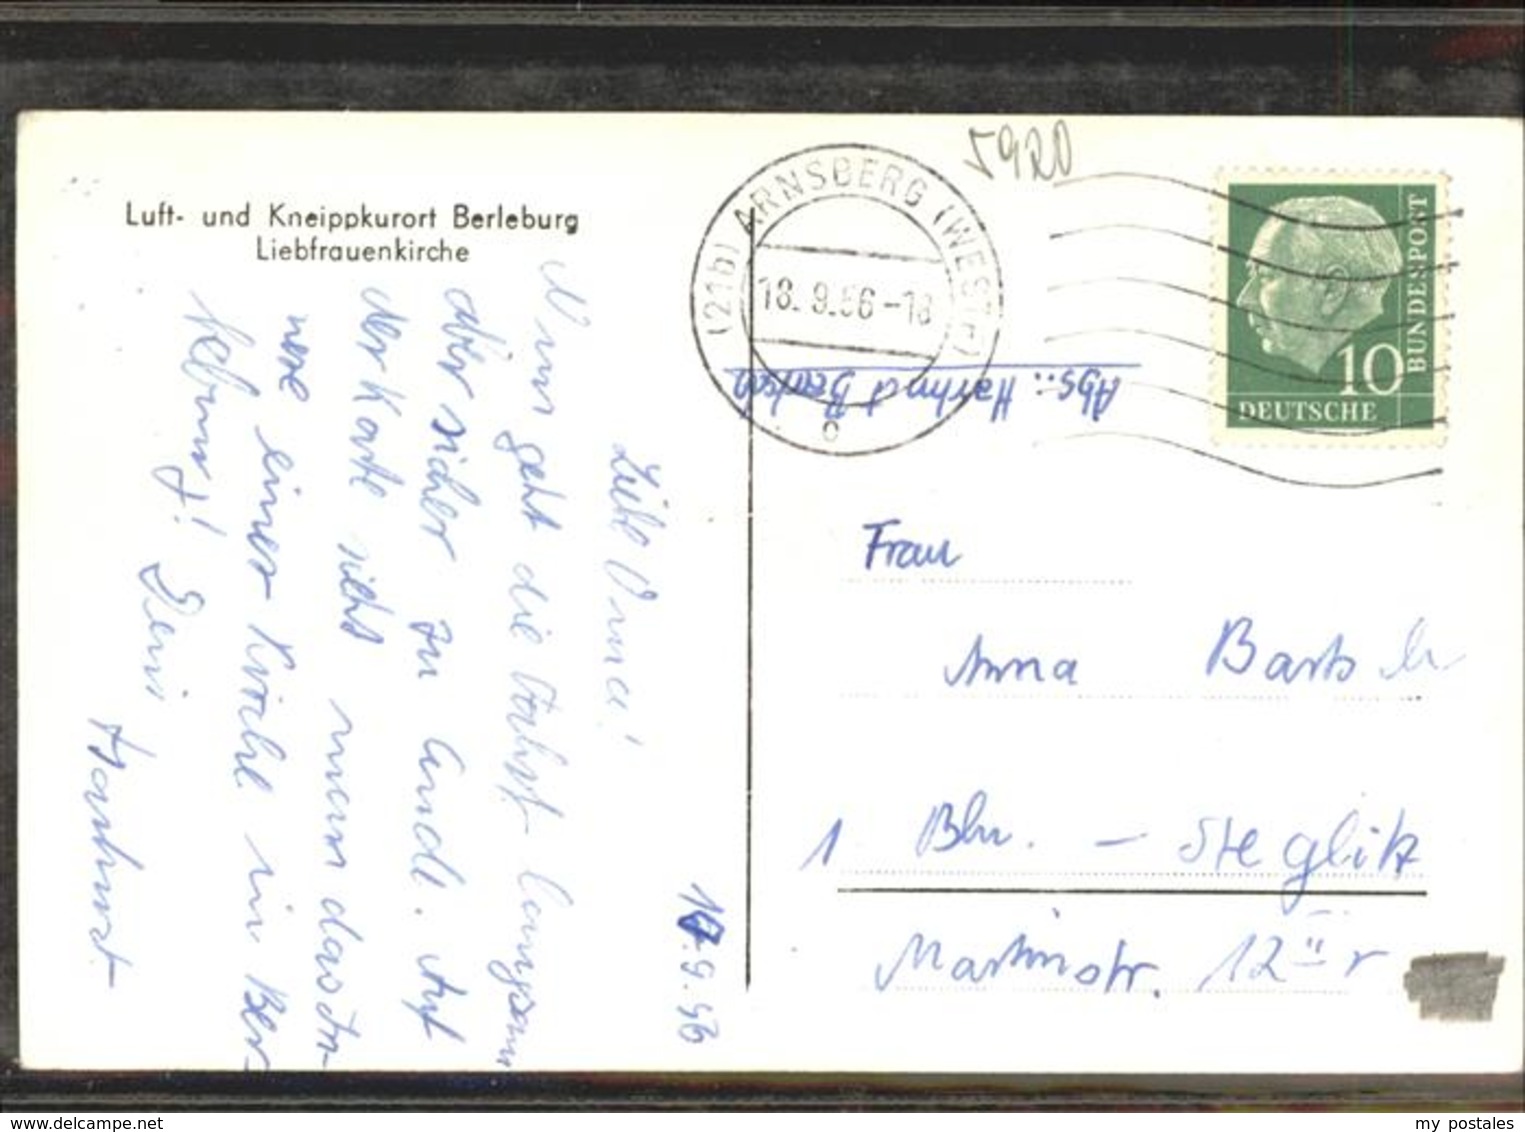 Luft- und Kneippkurort Berleburg
Liebfrauenkirche
5920
(21b) ARNSBERG (WESTF)
18.9.56-18
c
BUNDESPOST
10
DEUTSCHE
Abs.: Hartmut Bartsch
.9.56
Liebe Oma!
Nun geht die Fahrt langsam
aber sicher zu Ende. Auf
der Karte siehst man das In-
nere einer Kirche in Ber-
leburg! Dein
Hartmut
Frau
Anna Bartsch
1 Bln. - Steglitz
Martinstr. 12 II r
delcampe.net
my postales